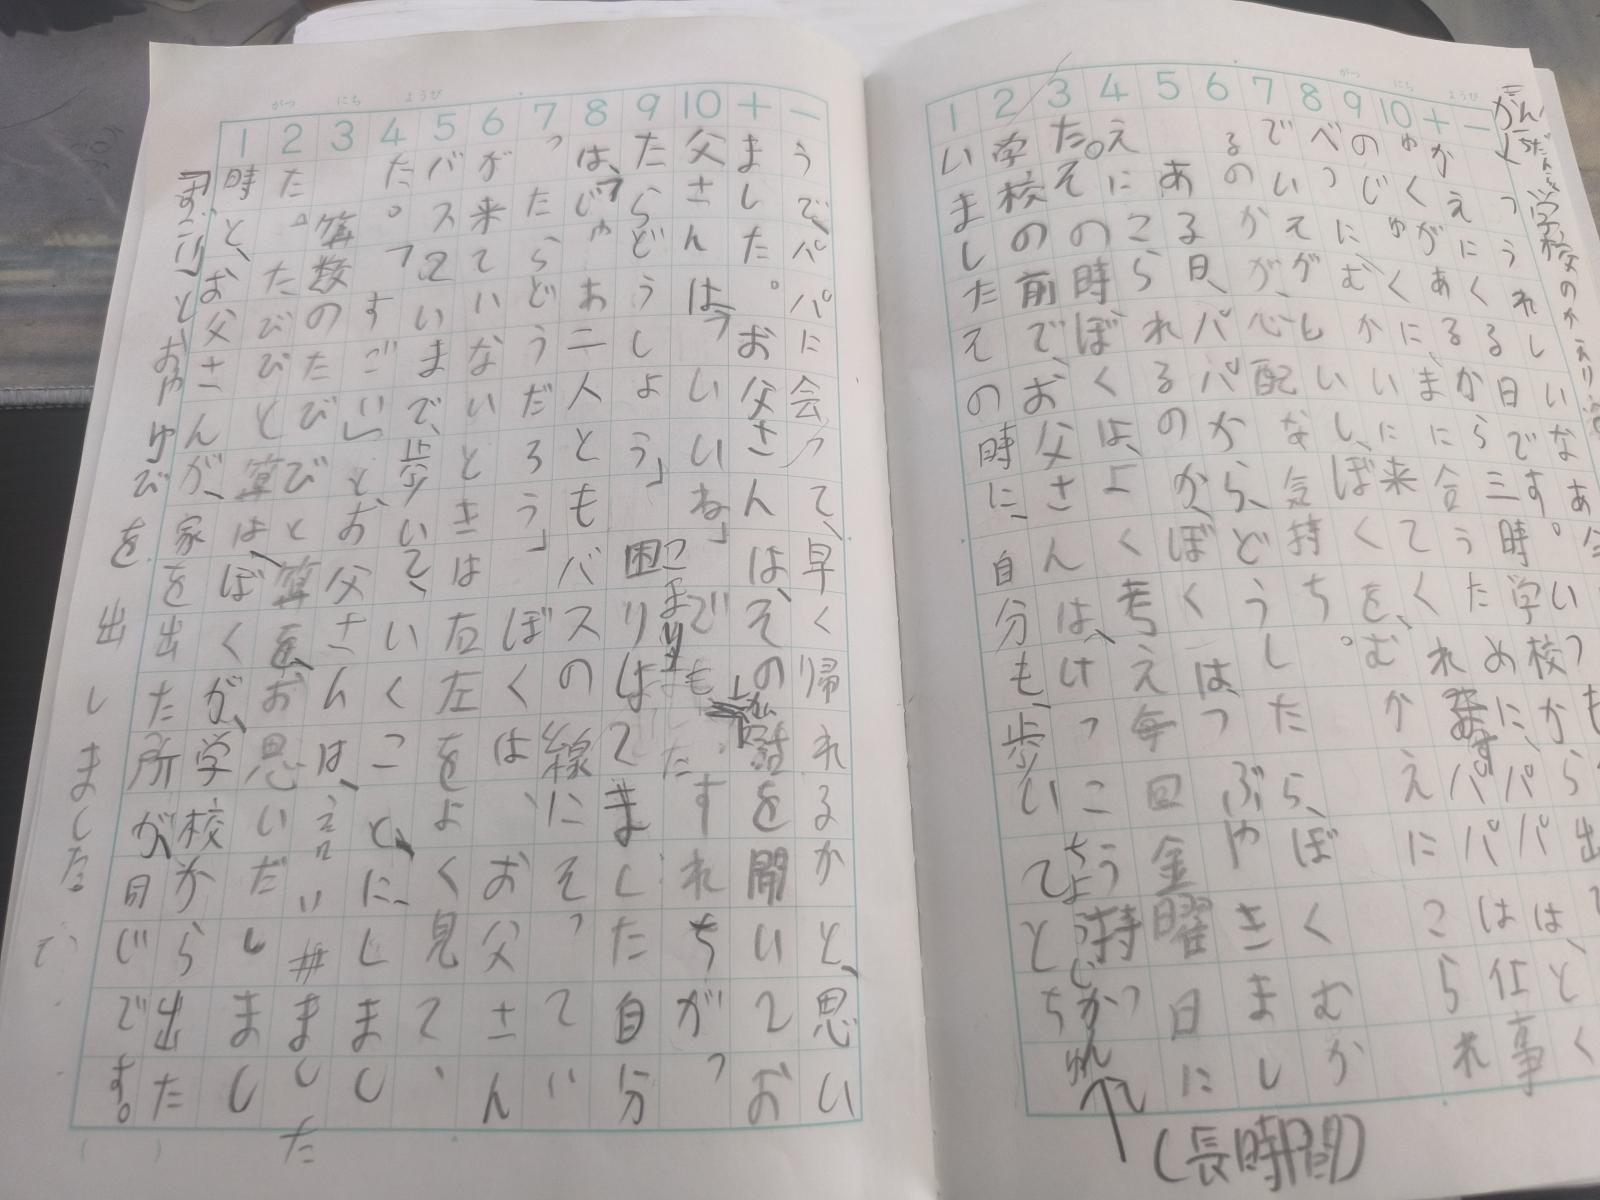 学校のかえり
うれしいなあ
かえにくる日です。いつも
ゅくがあるから三時学校から出て
のじゅくに、ま に合うために、パパは、とく
べつにむかいに来てくれますパパは仕事
でいえがしいし、ぼくを、むかえにこられ
るのかが、心配な気持ち。
ある日、パパから、どうしたら、ぼくむか
えにこられるのか、ぼくは、つぶやきまし
た。その時、ぼくは、よく考え毎回金曜日に
学校の前で、お父さんは、けっこう待っ
(長時間)
いましたその時に、自分も、歩いてとち
うで、パパに会って、早く帰れるかと、思い
ました。お父さんは、その話を聞いてお
父さんは、「いいね」でもすれちがっ
たらどうしよう」困りはてました自分
は、「じゃあ二人ともバスの線にそってい
ったらどうだろう」ぼくは、お父さん
が来ていないときは右左をよく見て、
バス2いまで、歩いて、いくことに、しまし
た。「すごい」と、お父さんは、言いました
算数のたびびと算を、お思いだしまし
た。たびびと算は、ぼくが、学校から出た
時と、お父さんが、家を出た所が、同じです。
「すごい」とおやゆびを出しました。